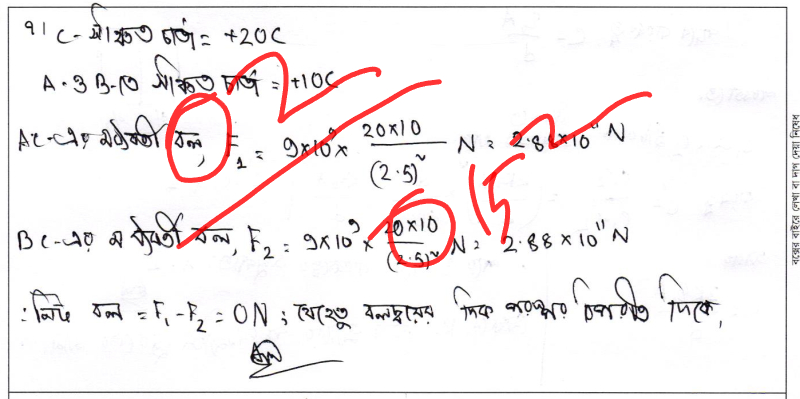 ৭। C- সঞ্চিত চার্জ = +20C
A ও B-তে সঞ্চিত চার্জ = +10C
AC-এর মধ্যবর্তী বল, F₁ = 9×10⁹ × 20×10/(2.5)² N = 2.88×10¹¹ N
BC-এর মধ্যবর্তী বল, F₂ = 9×10⁹ × 20×10/(2.5)² N = 2.88×10¹¹ N
∴ নিট বল = F₁ - F₂ = 0N; যেহেতু বলদ্বয়ের দিক পরস্পর বিপরীত দিকে,
বক্সের বাইরে লেখা বা দাগ দেয়া নিষেধ